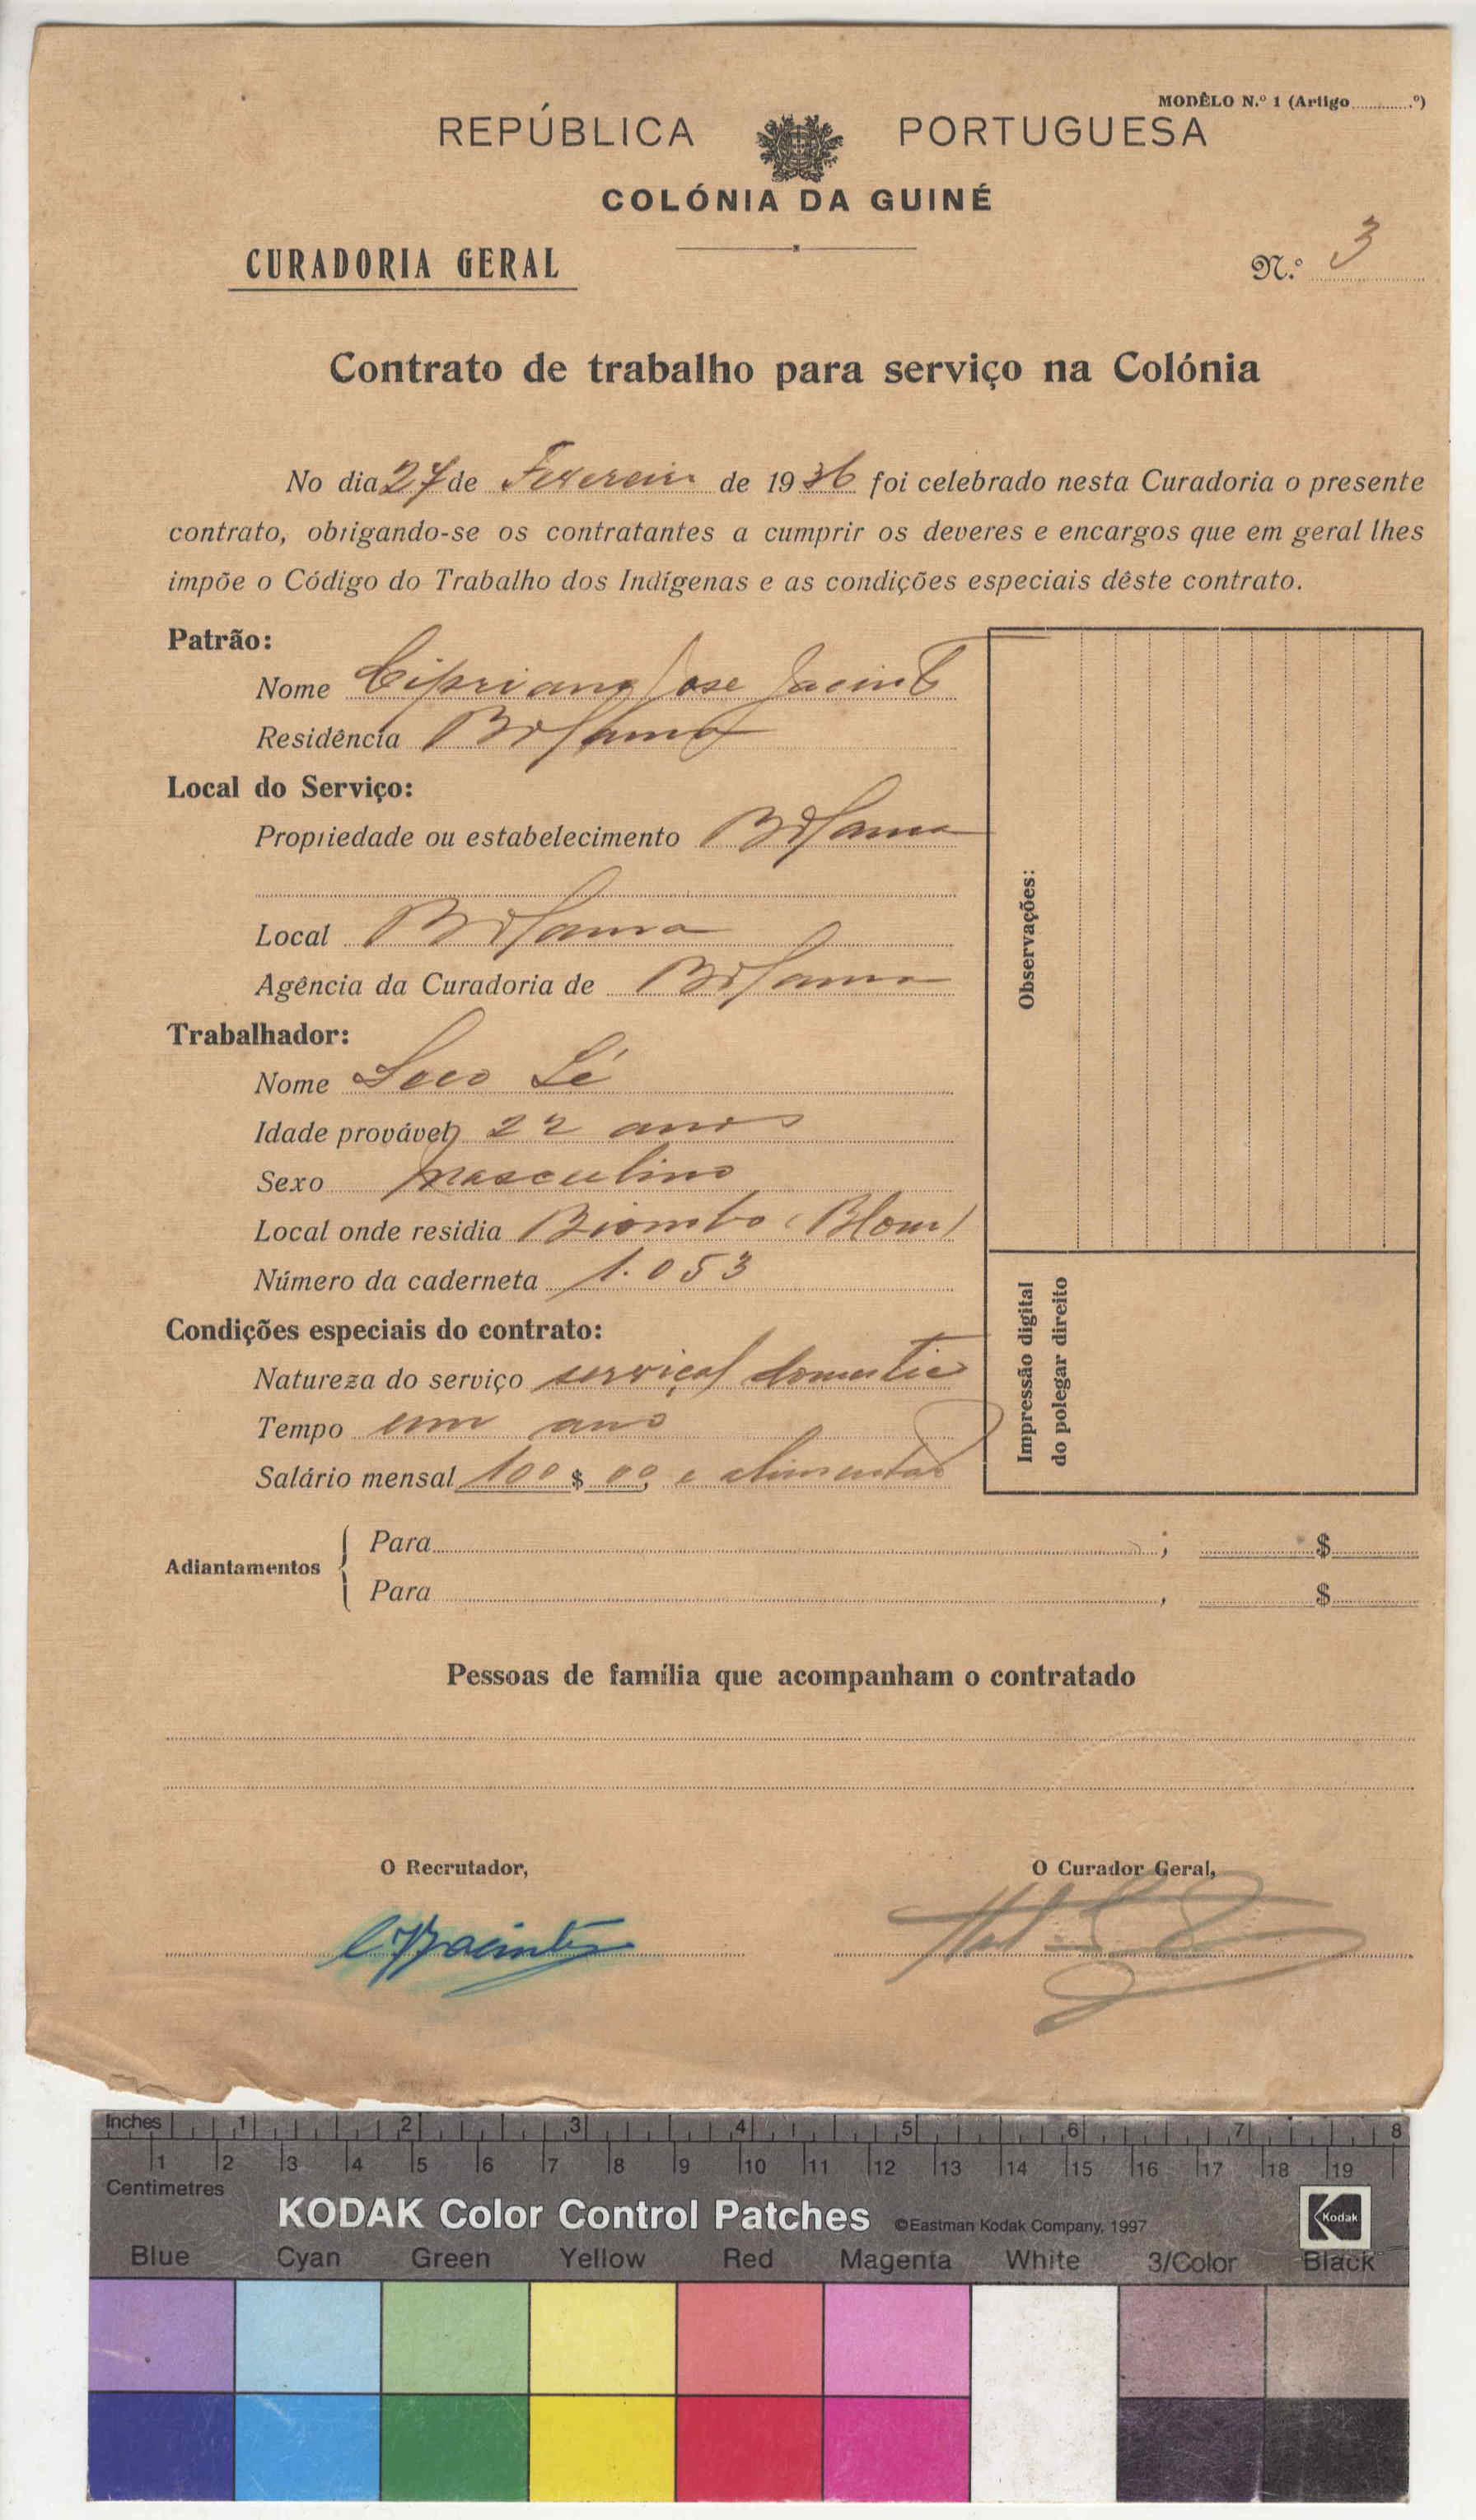 MODÊLO N.º 1 (Artigo ............º)
REPÚBLICA PORTUGUESA
COLÓNIA DA GUINÉ
CURADORIA GERAL
N.º 3
Contrato de trabalho para serviço na Colónia
No dia 27 de Fevereiro de 1936 foi celebrado nesta Curadoria o presente
contrato, obrigando-se os contratantes a cumprir os deveres e encargos que em geral lhes
impõe o Código do Trabalho dos Indígenas e as condições especiais dêste contrato.
Patrão:
Nome Cipriano Jose Jacinto
Residência Bolama
Local do Serviço:
Propriedade ou estabelecimento Bolama
Local Bolama
Agência da Curadoria de Bolama
Trabalhador:
Nome Soco Lé
Idade provável 22 anos
Sexo masculino
Local onde residia Biombo (Blom)
Número da caderneta 1.053
Condições especiais do contrato:
Natureza do serviço serviçal domestico
Tempo um ano
Salário mensal 100 $ 00, e alimentação
Observações:
Impressão digital
do polegar direito
Adiantamentos
Para ; $
Para , $
Pessoas de família que acompanham o contratado
O Recrutador,
O Curador Geral,
CJJacinto
Inches 1 2 3 4 5 6 7 8
1 2 3 4 5 6 7 8 9 10 11 12 13 14 15 16 17 18 19
Centimetres
KODAK Color Control Patches ©Eastman Kodak Company, 1997
Kodak
Blue Cyan Green Yellow Red Magenta White 3/Color Black